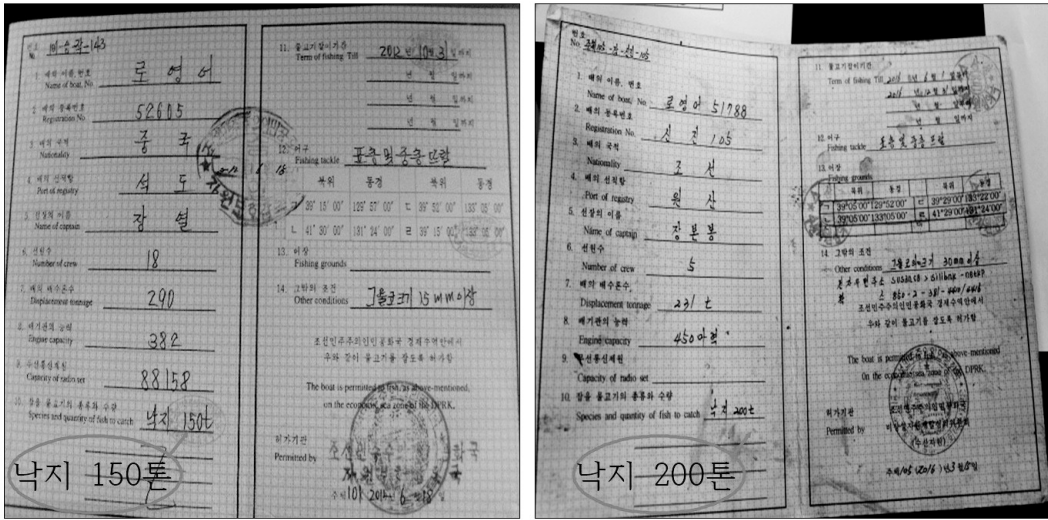 번호
No.
1. 배의 이름, 번호 로영어
Name of boat, No
2. 배의 등록번호 52605
Registration No.
3. 배의 국적 중국
Nationality
4. 배의 선적항 석도
Port of registry
5. 선장의 이름 장설
Name of captain
6. 선원수
Number of crew 18
7. 배의 배수톤수
Displacement tonnage 290
8. 배기관의 능력
Engine capacity 382
9. 무선통신제원
Capacity of radio set 88158
10. 잡을 물고기의 종류와 수량
Species and quantity of fish to catch 낙지 150t
낙지 150톤
11. 물고기잡이기간
Term of fishing Till 2012 년 10월 31 일까지
년 월 일까지
년 월 일까지
년 월 일까지
12. 어구
Fishing tackle 표층 및 중층 뜨랄
북위 동경 북위 동경
ㄱ 39° 15′ 00″ 129° 57′ 00″ ㄷ 39° 51′ 00″ 133° 05′ 00″
ㄴ 41° 30′ 00″ 131° 34′ 00″ ㄹ 39° 15′ 00″
13. 어장
Fishing grounds
14. 그밖의 조건
Other conditions 그물코크기 15mm이상
조선민주주의인민공화국 경제수역안에서
우와 같이 물고기를 잡도록 허가함
The boat is permitted to fish, as above-mentioned,
on the economic sea zone of the DPRK.
허가기관
Permitted by
주체101 2012년 6월 18일
번호
No.
1. 배의 이름, 번호
Name of boat, No 로영어 51788
2. 배의 등록번호
Registration No. 105
3. 배의 국적
Nationality 조선
4. 배의 선적항
Port of registry 원산
5. 선장의 이름
Name of captain 장본봉
6. 선원수
Number of crew 5
7. 배의 배수톤수
Displacement tonnage 231 t
8. 배기관의 능력
Engine capacity 450마력
9. 무선통신제원
Capacity of radio set
10. 잡을 물고기의 종류와 수량
Species and quantity of fish to catch 낙지 200t
낙지 200톤
11. 물고기잡이기간
Term of fishing Till 2016 년 6월 1일부터
2016 년 12월 31일까지
년 월 일까지
년 월 일까지
12. 어구
Fishing tackle 표층 및 중층 뜨랄
13. 어장
Fishing grounds
북위 동경 북위 동경
ㄱ 39°05′00″ 129°52′00″ ㄷ 39°29′00″ 133°22′00″
ㄴ 39°05′00″ 133°05′00″ ㄹ 41°29′00″ 131°24′00″
14. 그밖의 조건
Other conditions 그물코의크기 30mm이상
조선민주주의인민공화국 경제수역안에서
우와 같이 물고기를 잡도록 허가함
The boat is permitted to fish, as above-mentioned
On the economic sea zone of the DPRK.
허가기관 조선민주주의인민공화국
Permitted by
(수산자원)
주체105 (2016)년 3월 15일